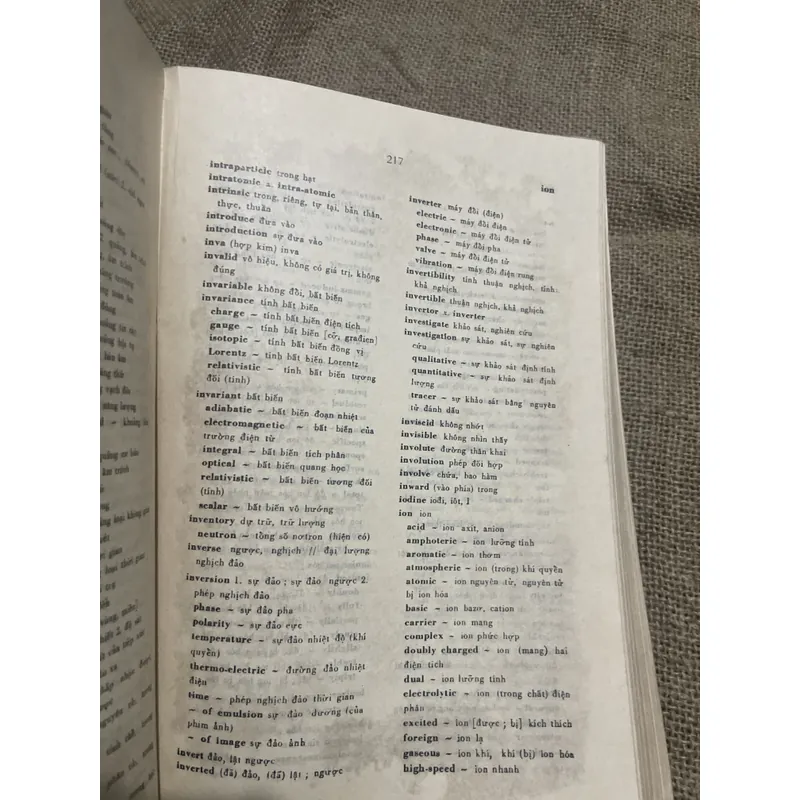 217
ion
intraparticle trong hạt
intratomic s. intra-atomic
intrinsic trong, riêng, tự tại, bản thân,
thực, thuần
introduce đưa vào
introduction sự đưa vào
inva (hợp kim) inva
invalid vô hiệu, không có giá trị, không
đúng
invariable không đổi, bất biến
invariance tính bất biến
charge – tính bất biến điện tích
gauge – tính bất biến [cỡ, građien]
isotopic – tính bất biến đồng vị
Lorentz – tính bất biến Lorentz
relativistic – tính bất biến tương
đối (tính)
invariant bất biến
adiabatic – bất biến đoạn nhiệt
electromagnetic – bất biến của
trường điện từ
integral – bất biến tích phân
optical – bất biến quang học
relativistic – bất biến tương đối
(tính)
scalar – bất biến vô hướng
inventory dự trữ, trữ lượng
neutron – tổng số nơtron (hiện có)
inverse ngược, nghịch // đại lượng
nghịch đảo
inversion 1. sự đảo ; sự đảo ngược 2.
phép nghịch đảo
phase – sự đảo pha
polarity – sự đảo cực
temperature – sự đảo nhiệt độ (khí
quyển)
thermo-electric – đường đảo nhiệt
điện
time – phép nghịch đảo thời gian
– of emulsion sự đảo dương (của
phim ảnh)
– of image sự đảo ảnh
invert đảo, lật ngược
inverted (đã) đảo, (đã) lật ; ngược
inverter máy đổi (điện)
electric – máy đổi điện
electronic – máy đổi điện tử
phase – máy đổi pha
valve – máy đổi điện tử
vibration – máy đổi điện rung
invertibility tính thuận nghịch, tính
khả nghịch
invertible thuận nghịch, khả nghịch
invertor s. inverter
investigate khảo sát, nghiên cứu
investigation sự khảo sát, sự nghiên
cứu
qualitative – sự khảo sát định tính
quantitative – sự khảo sát định
lượng
tracer – sự khảo sát bằng nguyên
tử đánh dấu
inviscid không nhớt
invisible không nhìn thấy
involute đường thân khai
involution phép đối hợp
involve chứa, bao hàm
inward (vào phía) trong
iodine iođi, iôt, I
ion ion
acid – ion axit, anion
amphoteric – ion lưỡng tính
aromatic – ion thơm
atmospheric – ion (trong) khí quyển
atomic – ion nguyên tử, nguyên tử
bị ion hóa
basic – ion bazơ, cation
carrier – ion mang
complex – ion phức hợp
doubly charged – ion (mang) hai
điện tích
dual – ion lưỡng tính
electrolytic – ion (trong chất) điện
phân
excited – ion [được ; bị] kích thích
foreign – ion lạ
gaseous – ion khí, khí (bị) ion hóa
high-speed – ion nhanh